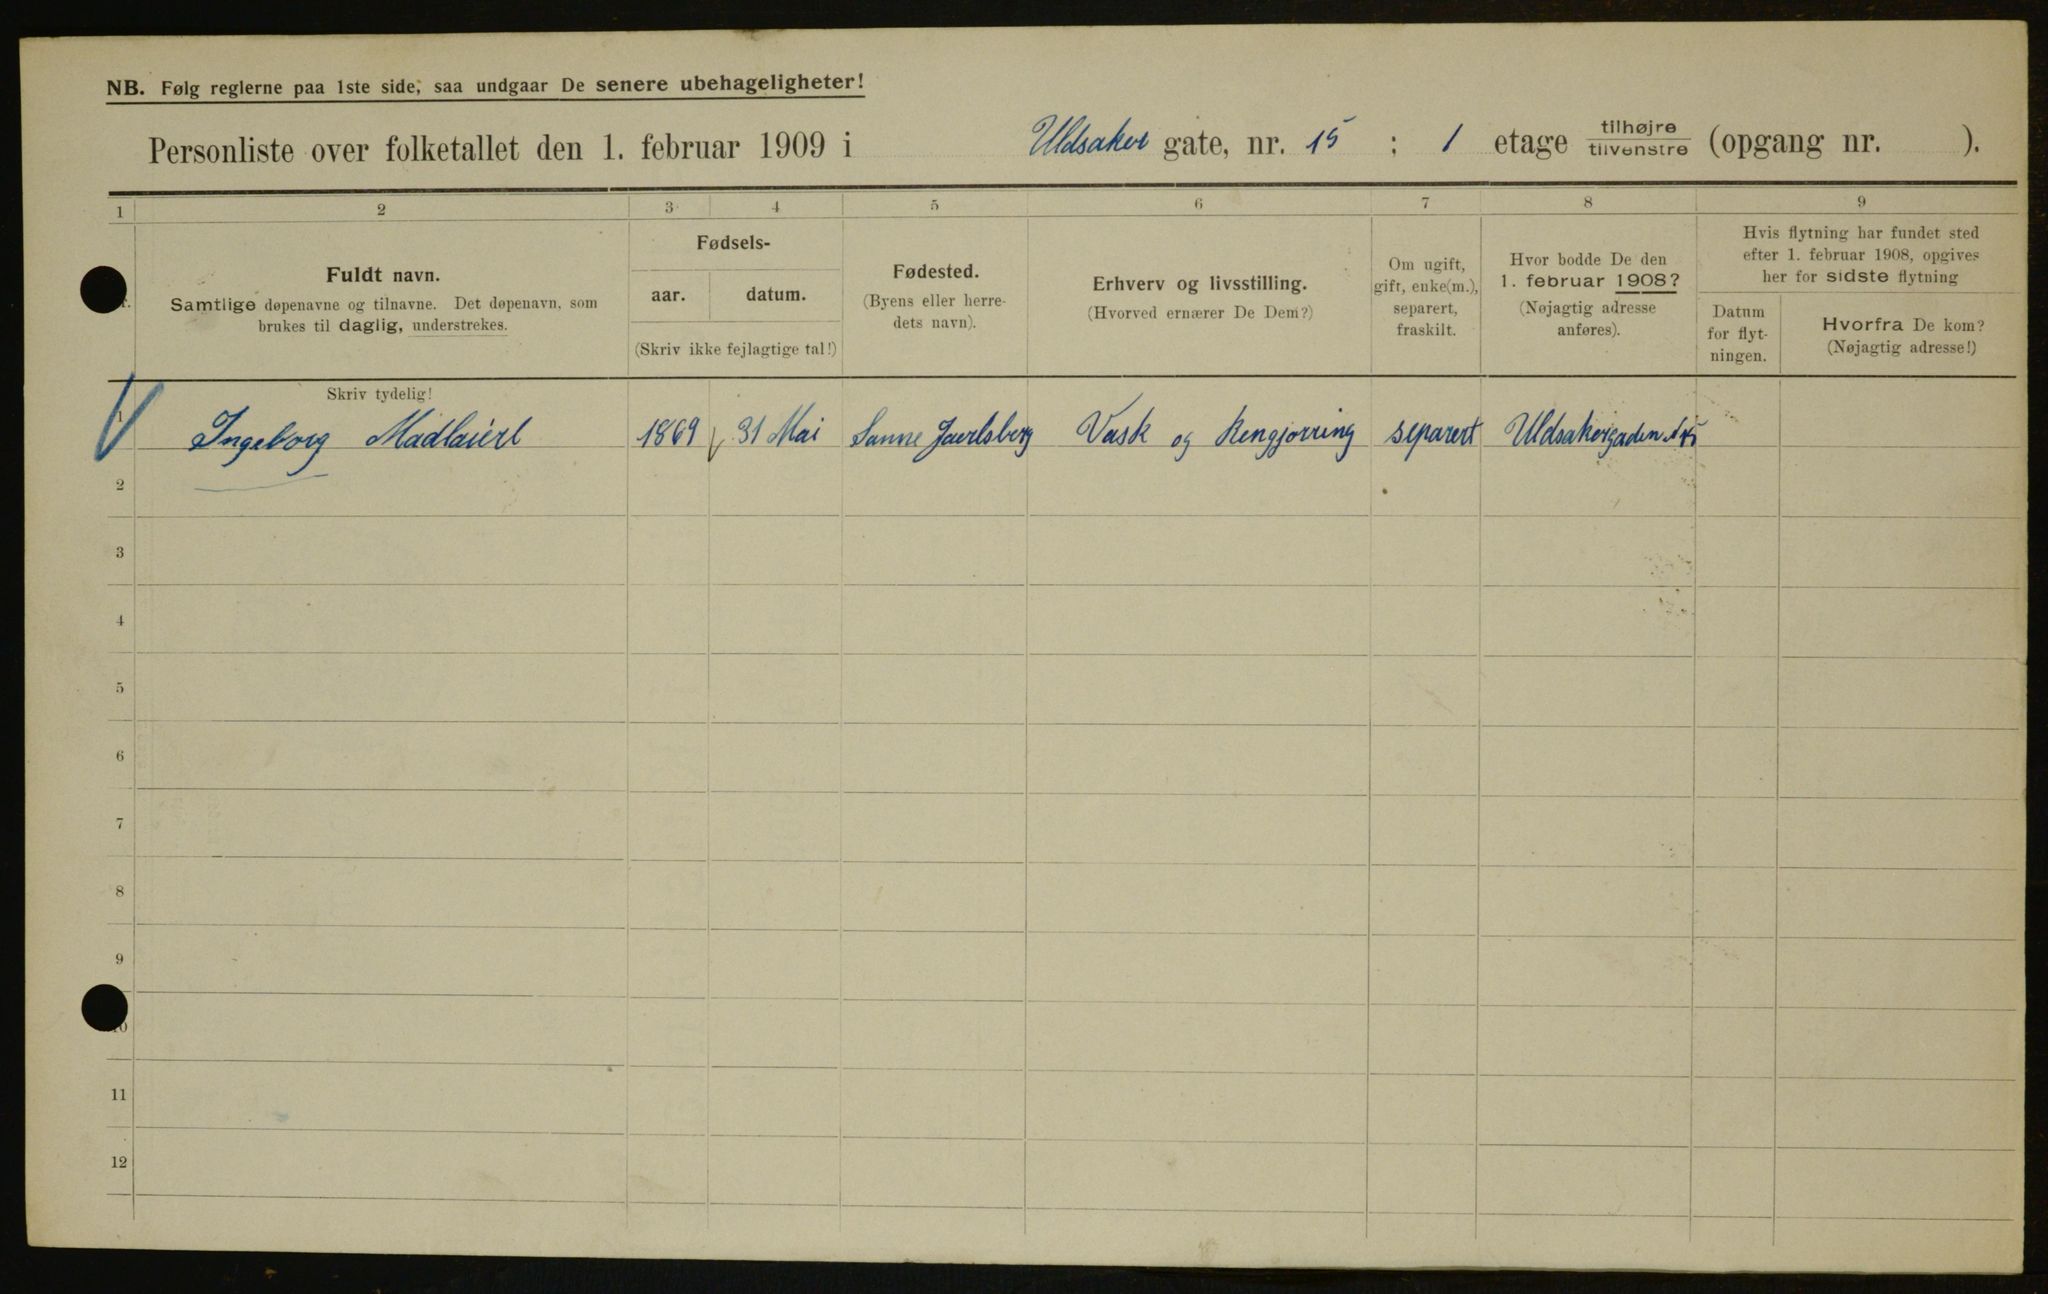 NB. Følg reglerne paa 1ste side, saa undgaar De senere ubehageligheter!
Personliste over folketallet den 1. februar 1909 i Uldsaker gate, nr. 15 ; 1 etage tilhøjre tilvenstre (opgang nr. ).
1 2 3 4 5 6 7 8 9
Fuldt navn.
Samtlige døpenavne og tilnavne. Det døpenavn, som
brukes til daglig, understrekes.
Fødsels-
aar. datum.
(Skriv ikke fejlagtige tal!)
Fødested.
(Byens eller herre-
dets navn).
Erhverv og livsstilling.
(Hvorved ernærer De Dem?)
Om ugift,
gift, enke(m.),
separert,
fraskilt.
Hvor bodde De den
1. februar 1908?
(Nøjagtig adresse
anføres).
Hvis flytning har fundet sted
efter 1. februar 1908, opgives
her for sidste flytning
Datum
for flyt-
ningen.
Hvorfra De kom?
(Nøjagtig adresse!)
Skriv tydelig!
1 Ingeborg 1869 31 Mai Sanne Jaerlsberg Vask og Rengjorring separert Uldsakergaden
2
3
4
5
6
7
8
9
10
11
12